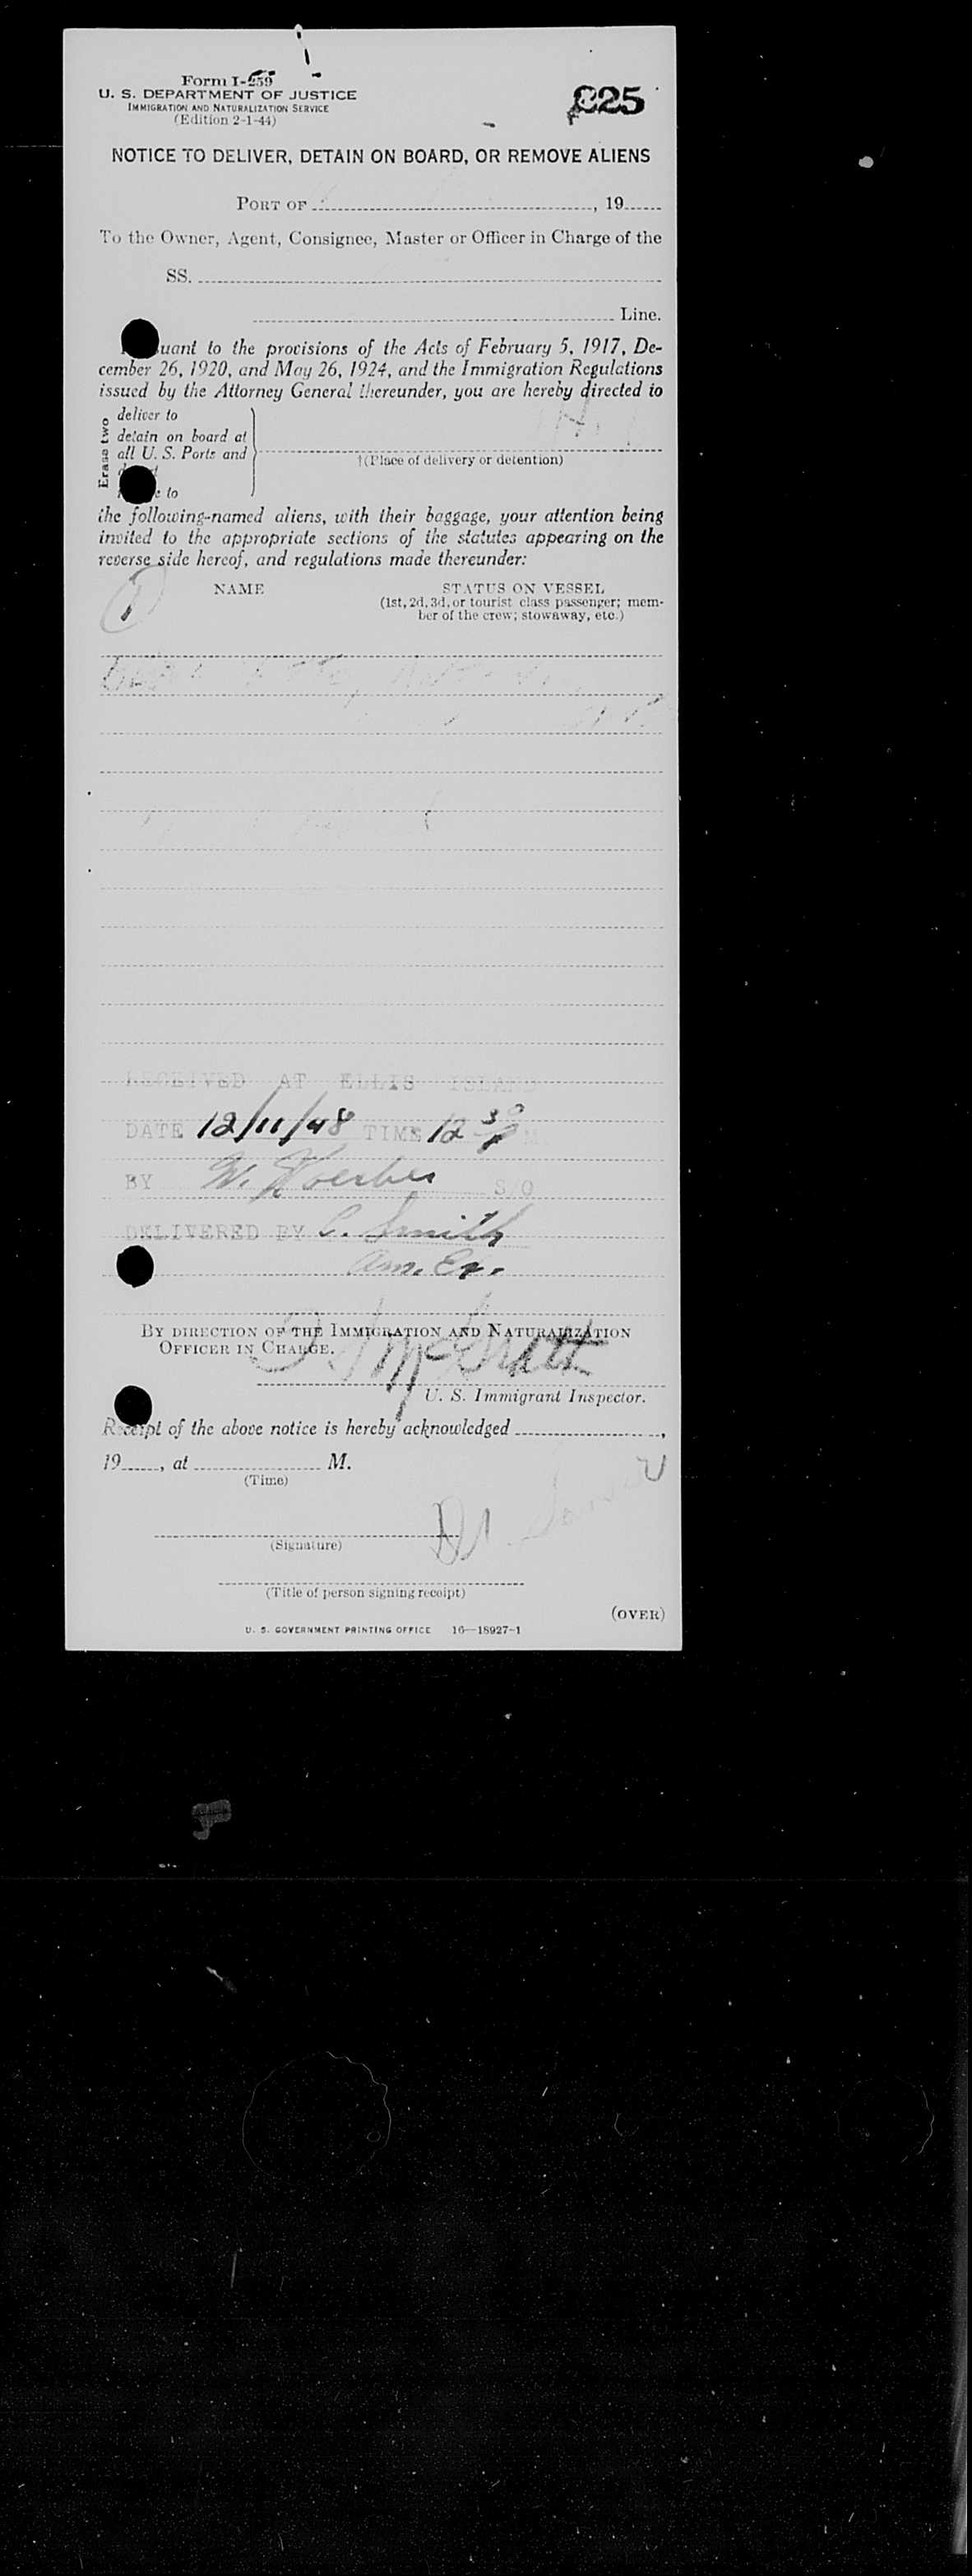 Form I-259
U. S. DEPARTMENT OF JUSTICE
IMMIGRATION AND NATURALIZATION SERVICE
(Edition 2-1-44)
825
NOTICE TO DELIVER, DETAIN ON BOARD, OR REMOVE ALIENS
PORT OF , 19
To the Owner, Agent, Consignee, Master or Officer in Charge of the
SS.
Line.
uant to the provisions of the Acts of February 5, 1917, De-
cember 26, 1920, and May 26, 1924, and the Immigration Regulations
issued by the Attorney General thereunder, you are hereby directed to
Erase two
deliver to
detain on board at
all U. S. Ports and
to
†(Place of delivery or detention)
the following-named aliens, with their baggage, your attention being
invited to the appropriate sections of the statutes appearing on the
reverse side hereof, and regulations made thereunder:
1
NAME
STATUS ON VESSEL
(1st, 2d, 3d, or tourist class passenger; mem-
ber of the crew; stowaway, etc.)
RECEIVED AT ELLIS ISLAND
DATE 12/11/48 TIME 12 30 P M
BY W. S/O
DELIVERED BY C. Smith
Am. Ex.
BY DIRECTION OF THE IMMIGRATION AND NATURALIZATION
OFFICER IN CHARGE.
McGrath
U. S. Immigrant Inspector.
Receipt of the above notice is hereby acknowledged ,
19 , at M.
(Time)
(Signature)
(Title of person signing receipt)
(OVER)
U. S. GOVERNMENT PRINTING OFFICE 16—18927-1